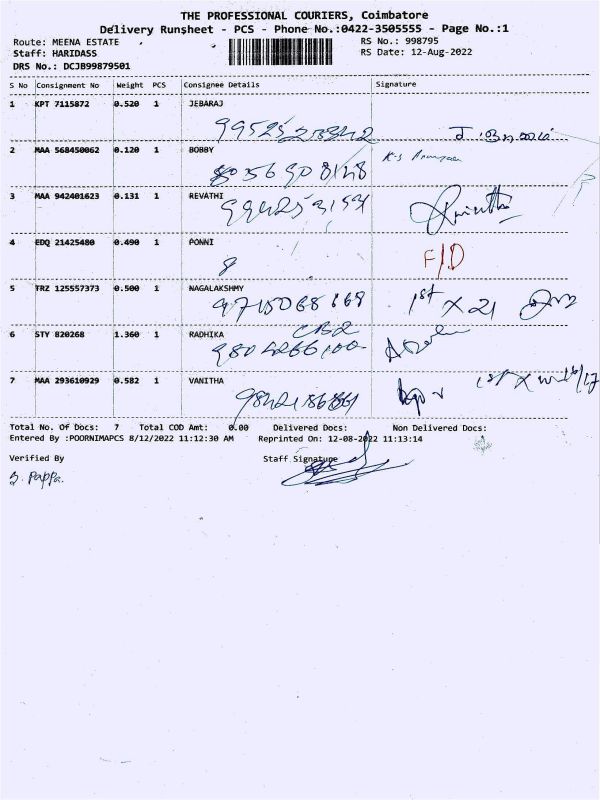 THE PROFESSIONAL COURIERS, Coimbatore
Delivery Runsheet - PCS - Phone No.:0422-3505555 - Page No.:1
Route: MEENA ESTATE RS No.: 998795
Staff: HARIDASS RS Date: 12-Aug-2022
DRS No.: DCJB99879501
S No Consignment No Weight PCS Consignee Details Signature
1 KPT 7115872 0.520 1 JEBARAJ
2 MAA 568450062 0.120 1 BOBBY
8056908148
3 MAA 942401623 0.131 1 REVATHI
4 EDQ 21425480 0.490 1 PONNI
8 F/D
5 TRZ 125557373 0.500 1 NAGALAKSHMY
9715068168 1st X 21
6 STY 820268 1.360 1 RADHIKA
7 MAA 293610929 0.582 1 VANITHA
1st X
Total No. Of Docs: 7 Total COD Amt: 0.00 Delivered Docs: Non Delivered Docs:
Entered By :POORNIMAPCS 8/12/2022 11:12:30 AM Reprinted On: 12-08-2022 11:13:14
Verified By Staff Signature
Z. Pappa.